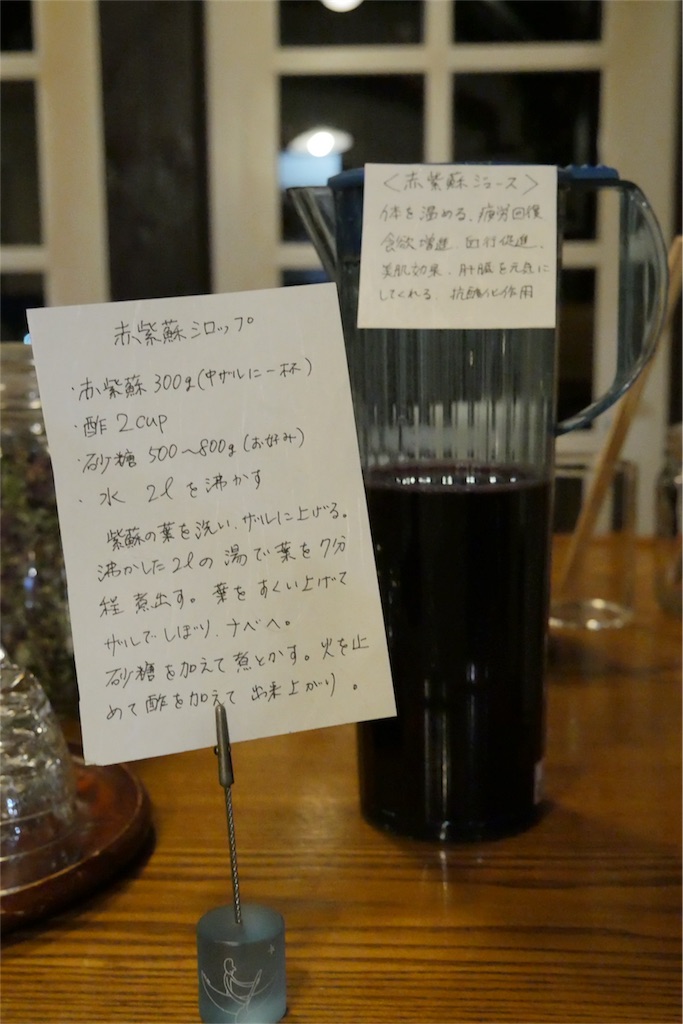 赤紫蘇シロップ
・赤紫蘇 300g(中ザルに一杯)
・酢 2cup
・砂糖 500〜800g(お好み)
・水 2ℓを沸かす
紫蘇の葉を洗い、ザルに上げる。
沸かした2ℓの湯で葉を7分
程煮出す。葉をすくい上げて
ザルでしぼり、ナベへ。
砂糖を加えて煮とかす。火を止
めて酢を加えて出来上がり。
＜赤紫蘇ジュース＞
体を温める、疲労回復
食欲増進、血行促進、
美肌効果、肝臓を元気に
してくれる、抗酸化作用